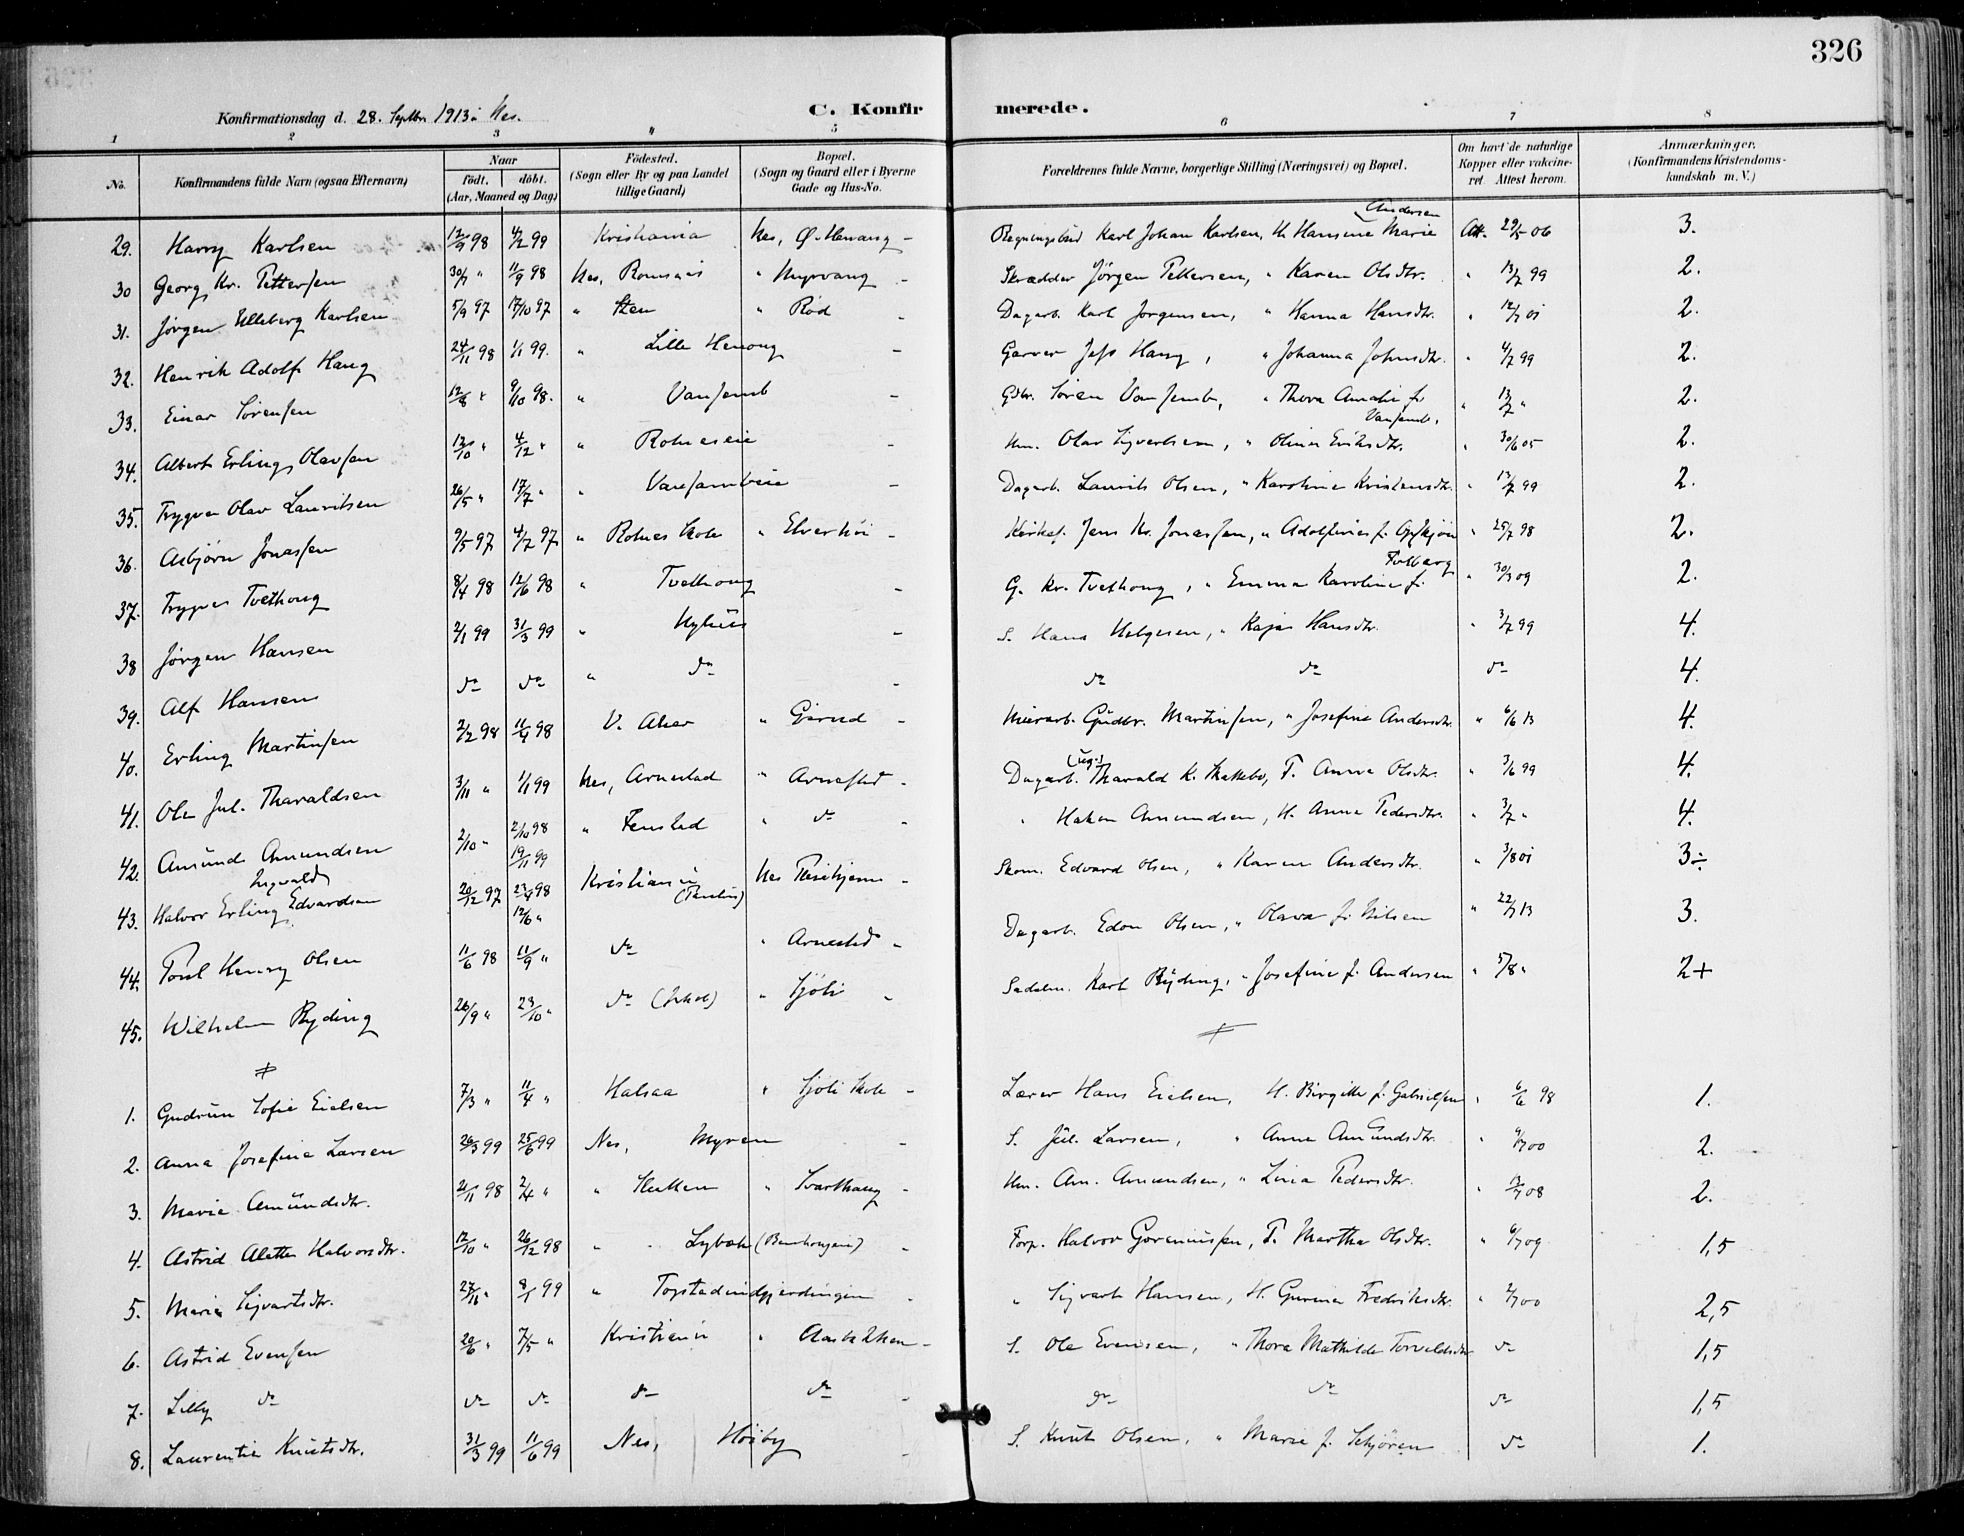 326
Konfirmationsdag d. 28. Septbr 1913 i Nes.
C. Konfirmerede.
1 2 3 4 5 6 7 8
No.
Konfirmandens fulde Navn (ogsaa Efternavn)
Naar
födt. döbt.
(Aar, Maaned og Dag)
Födested.
(Sogn eller By og paa Landet tillige Gaard)
Bopæl.
(Sogn og Gaard eller i Byerne Gade og Hus-No.
Forældrenes fulde Navne, borgerlige Stilling (Næringsvei) og Bopæl.
Om havt de naturlige Kopper eller vakcineret. Attest herom.
Anmærkninger.
(Konfirmandens Kristendomskundskab m. V.)
29. Harry Karlsen 12/9 98 4/2 99 Kristiania Nes, Ø. Henang - Karl Johan Karlsen, H. Hansine Marie Andersen Att. 29/5 06 3.
30 Georg Kr. Pettersen 30/7 " 11/9 98 Nes, " Myrvang - Skrædder Jörgen Pettersen, " Karen Olsdtr. " 13/7 99 2.
31. Jörgen Elleberg Karlsen 5/9 97 17/10 97 " Sten " Röd - Dagarb. Karl Jorgensen, " Hanna Hansdtr. " 12/7 01 2.
32. Henrik Adolf Haug 24/11 98 1/1 99. " Lille Henong - Garver Jefs Haug, " Johanna Johnsdtr. " 4/7 99 2.
33. Einar Sörensen 12/8 " 9/10 98. " Vansemb - Gbr. Sören Vansemb, " Thora Amalie f. Vansemb. " 13/7 " 2.
34. Albert Erling Olavsen 13/10 " 4/12 " " Rolneseie - Hm. Olav Sigvartsen, " Olina Eriksdtr. " 30/6 05 2.
35. Trygve Olav Lauritsen 26/5 " 17/7 " " Vansambeie - Dagarb. Laurits Olsen, " Karoline Kristensdtr. " 13/7 99 2.
36. Asbjörn Jonassen 9/5 97 4/7 97 " Rolnes Skole " Elverhöi - Kirkes. Jens Kr. Jonassen, " Adolfine f. " 25/7 98 2.
37. Trygve Tvethong 8/4 98 12/6 98 " Tvethong - G. Kr. Tvethong, " Emma Karoline f. " 30/3 09 2.
38 Jörgen Hansen 2/1 99 31/3 99 " Nyhus - S. Hans Helgesen, " Kaja Hansdtr. " 3/7 99 4.
39. Alf Hansen do do " do - do do do 4.
40. Erling Martinsen 2/2 98 11/4 98 V. Aker " Gjerud - Murarb. Gudbr. Martinsen, " Josefine Andersdtr. " 6/6 13 4.
41. Ole Jul. Tharaldsen 3/11 " 1/1 99 Nes, Arnestad " Arnestad - Dagarb. (ug.) Tharald K. Skattebo, F. Anna Olsdtr. " 3/6 99 4.
42. Amund Amundsen 2/10 " 2/10 98 19/11 99 " Fenstad " do - " Haken Amundsen, H. Anna Pedersdtr. " 3/7 " 4.
43. Halvor Erling Ingvald Edvardsen 20/12 97 23/4 98 12/6 " Kristiania (Paulus) Nes - Skom. Edvard Olsen, " Karen Andersdtr. " 3/8 01 3÷
44. Poul Henry Olsen 11/6 98 11/9 " do " Arnestad - Dagarb. Edon Olsen, " Olava f. Nilsen " 22/7 13 3.
45. Wilhelm Ryding 26/9 " 23/10 " do (Jakob) " Sjöli - Sadelm. Karl Ryding, " Josefine f. Andersen " 5/8 " 2+
1. Gudrun Sofie Eielsen 7/3 " 11/4 " Halsaa " Sjöli Skole - Lærer Hans Eielsen, H. Birgitte f. Gabrielsen " 6/6 98 1.
2. Anna Josefine Larsen 26/3 99 25/6 99 Nes, Myren - S. Jul. Larsen, " Anne Amundsdtr. " 9/7 00 2.
3. Marie Amundsdtr. 21/11 98 2/4 " " Skutten " Svarthaug - Hm. Am. Amundsen, " Lina Pedersdtr. " 13/7 08 2.
4. Astrid Alette Halvorsdtr. 12/10 " 26/12 98 " Lybæk - Forp. Halvor, F. Martha Olsdtr. " 6/7 09 1,5
5. Maria Sigvartsdtr. 27/11 " 8/1 99 " - " Sigvart Hansen, H. Gurina Fredriksdtr. " 2/7 00 2,5
6. Astrid Evensen 20/6 " 7/5 " Kristiania " - S. Ole Evensen, " Thora Mathilde Torvaldsdtr do 1,5
7. Lilly do do do do do - do do do 1,5
8. Laurentie Knutsdtr. 31/3 99 11/6 99 Nes, Höiby - S. Knut Olsen, " Marie f. Schjören do 1.